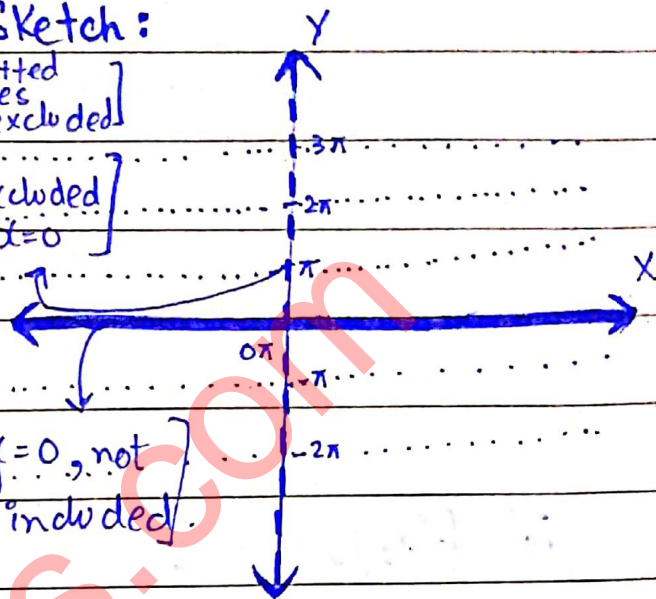 Sketch:
Y
tted
es
excluded]
3π
cluded
2π
x=0]
π
X
0π
-π
=0, not
-2π
included].
s.com